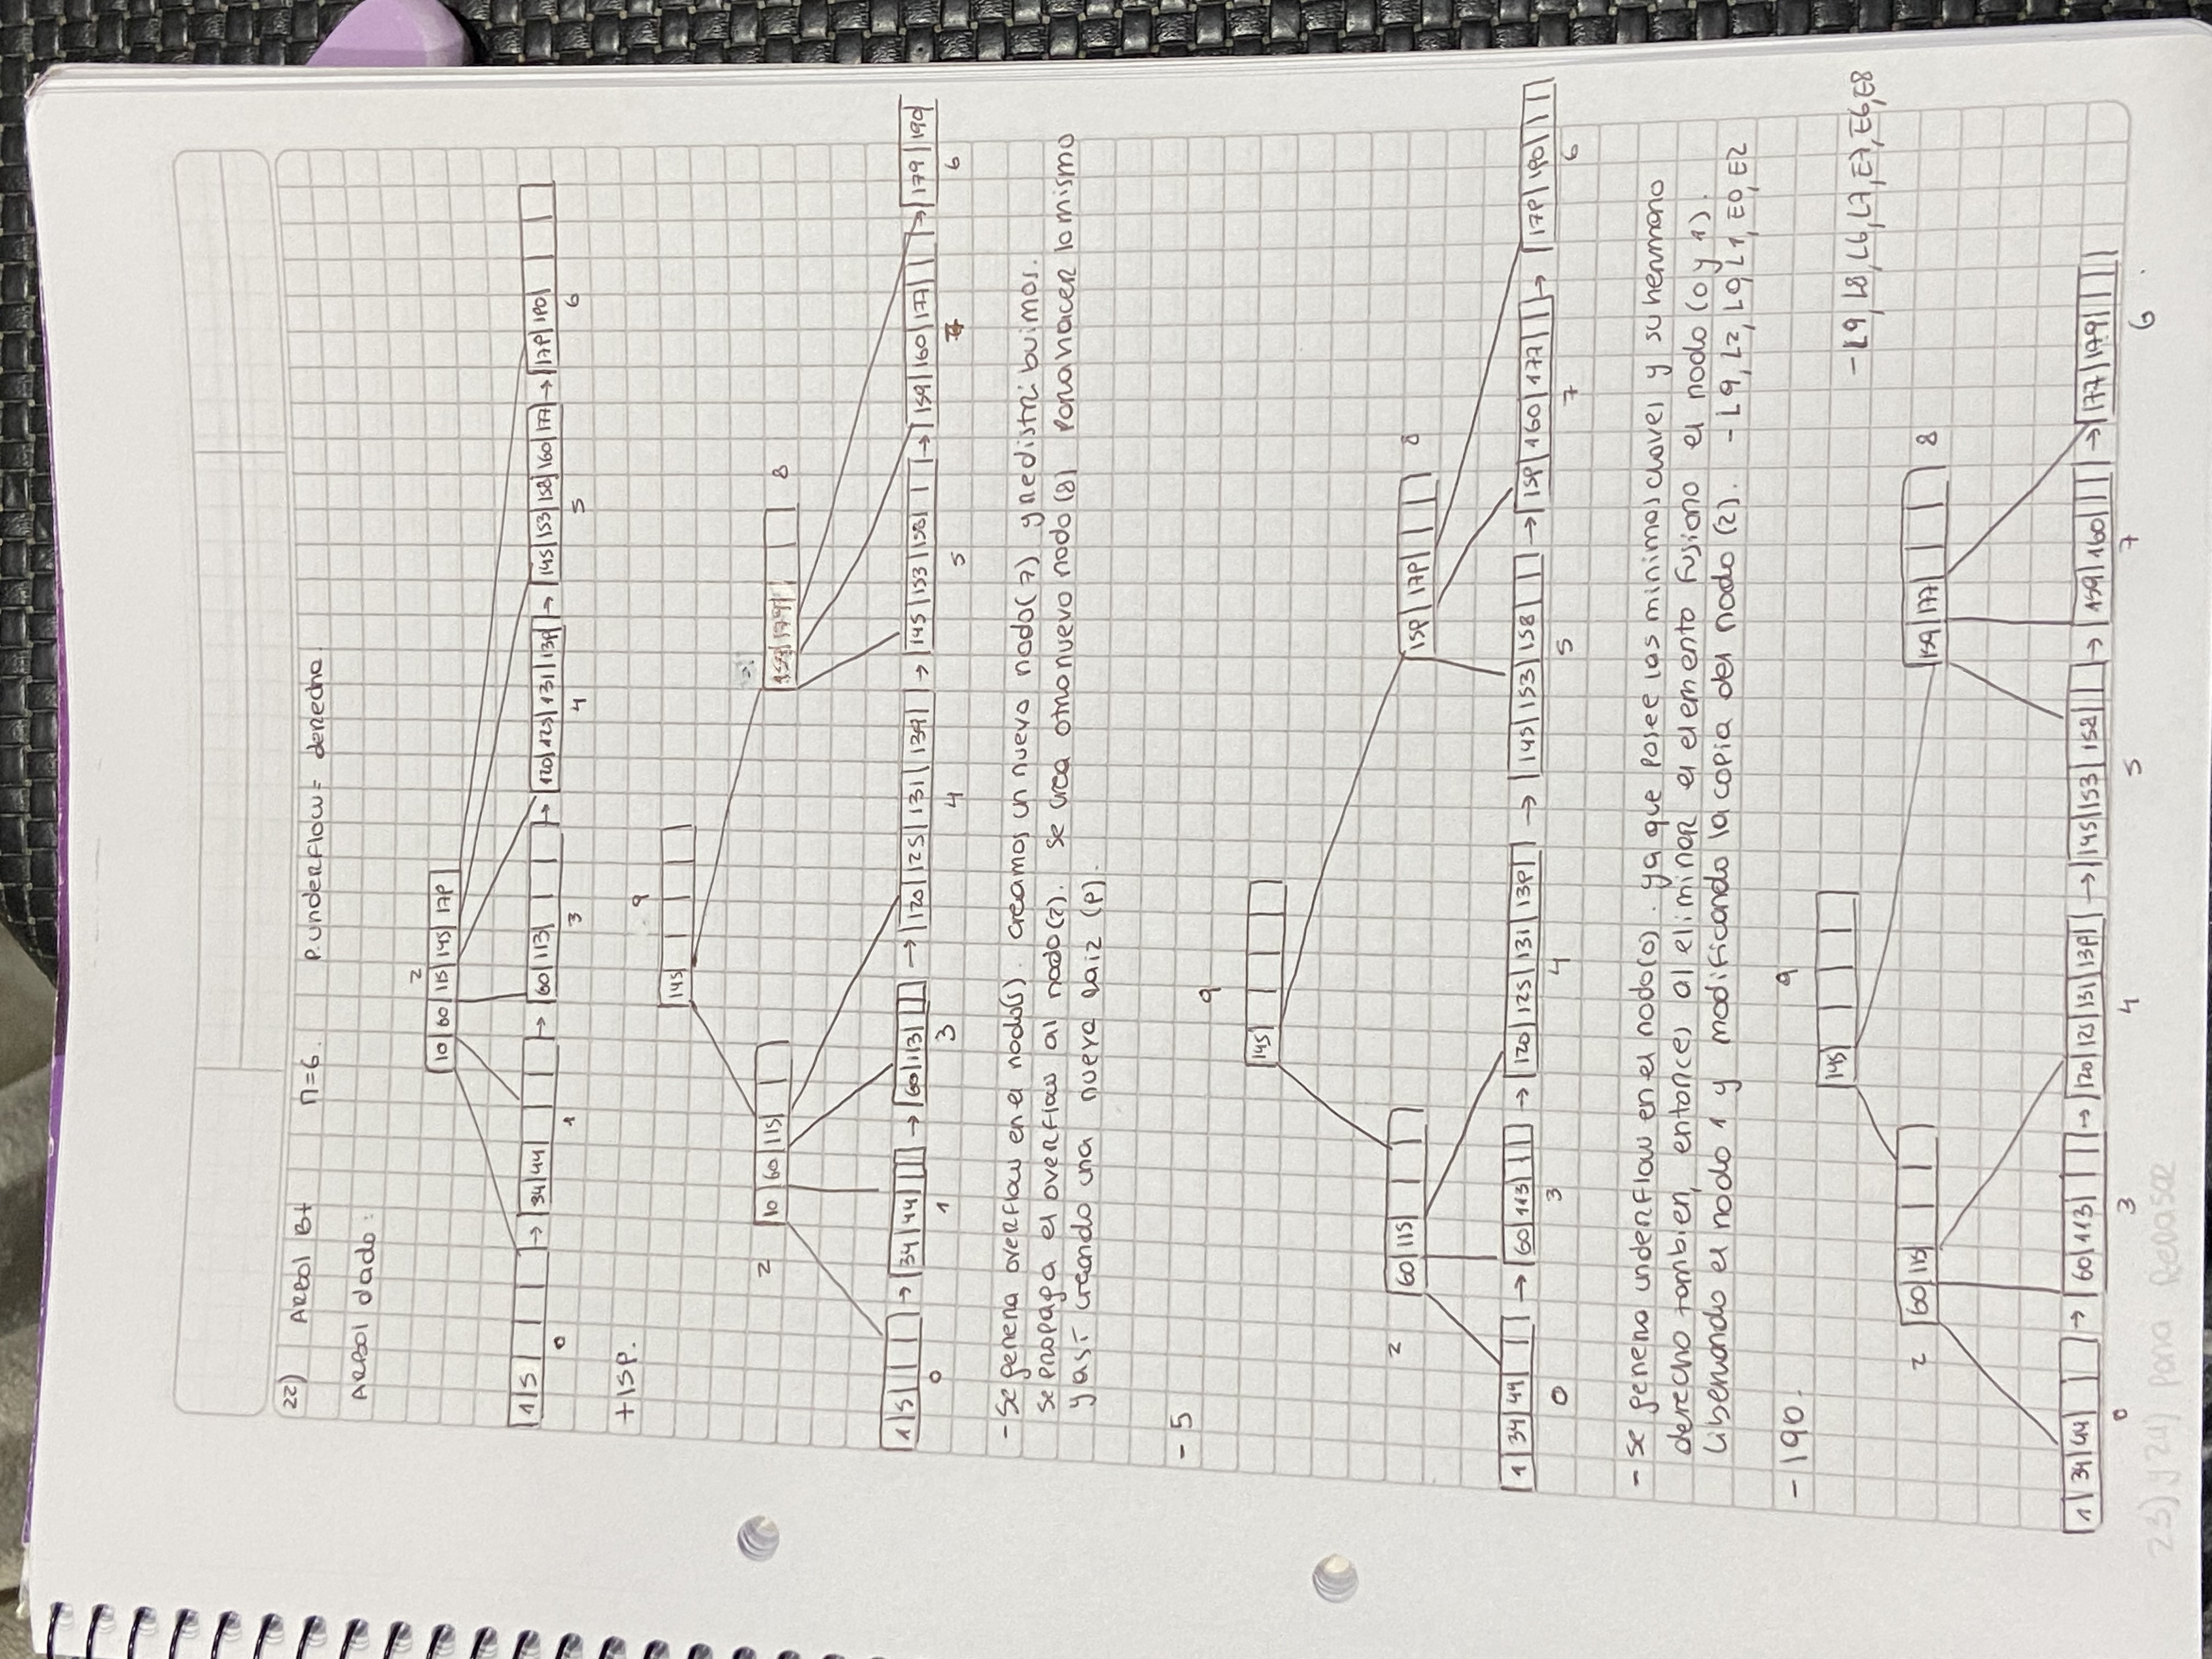 22) ARBOl B+ n=6. P.underflow= derecha.
ARBOl dado:
2
10 60 115 145 179
1 5 → 34 44 → 60 113 → 120 125 131 139 → 145 153 158 160 177 → 179 190
0 1 3 4 5 6
+159.
9
145
2 10 60 115 179 8
1 5 → 34 44 → 60 113 → 120 125 131 139 → 145 153 158 → 159 160 177 → 179 190
0 1 3 4 5 7 6
- Se genera overflow en el nodo(5). creamos un nuevo nodo(7) y redistribuimos.
se propaga el overflow al nodo(2). se crea otro nuevo nodo (8) para hacer lo mismo
y así creando una nueva raiz (9).
- 5
9
145
2 60 115 159 179 8
1 34 44 → 60 113 → 120 125 131 139 → 145 153 158 → 159 160 177 → 179 190
0 3 4 5 7 6
- se genera underflow en el nodo(0). ya que posee las minimas claves y su hermano
derecho tambien, entonces al eliminar el elemento fusiono el nodo (0 y 1).
liberando el nodo 1 y modificando la copia del nodo (2). - L9, L2, L0, L1, E0, E2
- 190.
9
145
- L9, L8, L6, L7, E7, E6, E8
2 60 115 159 177 8
1 34 44 → 60 113 → 120 125 131 139 → 145 153 158 → 159 160 → 177 179
0 3 4 5 7 6
23) y 24) para Repasar